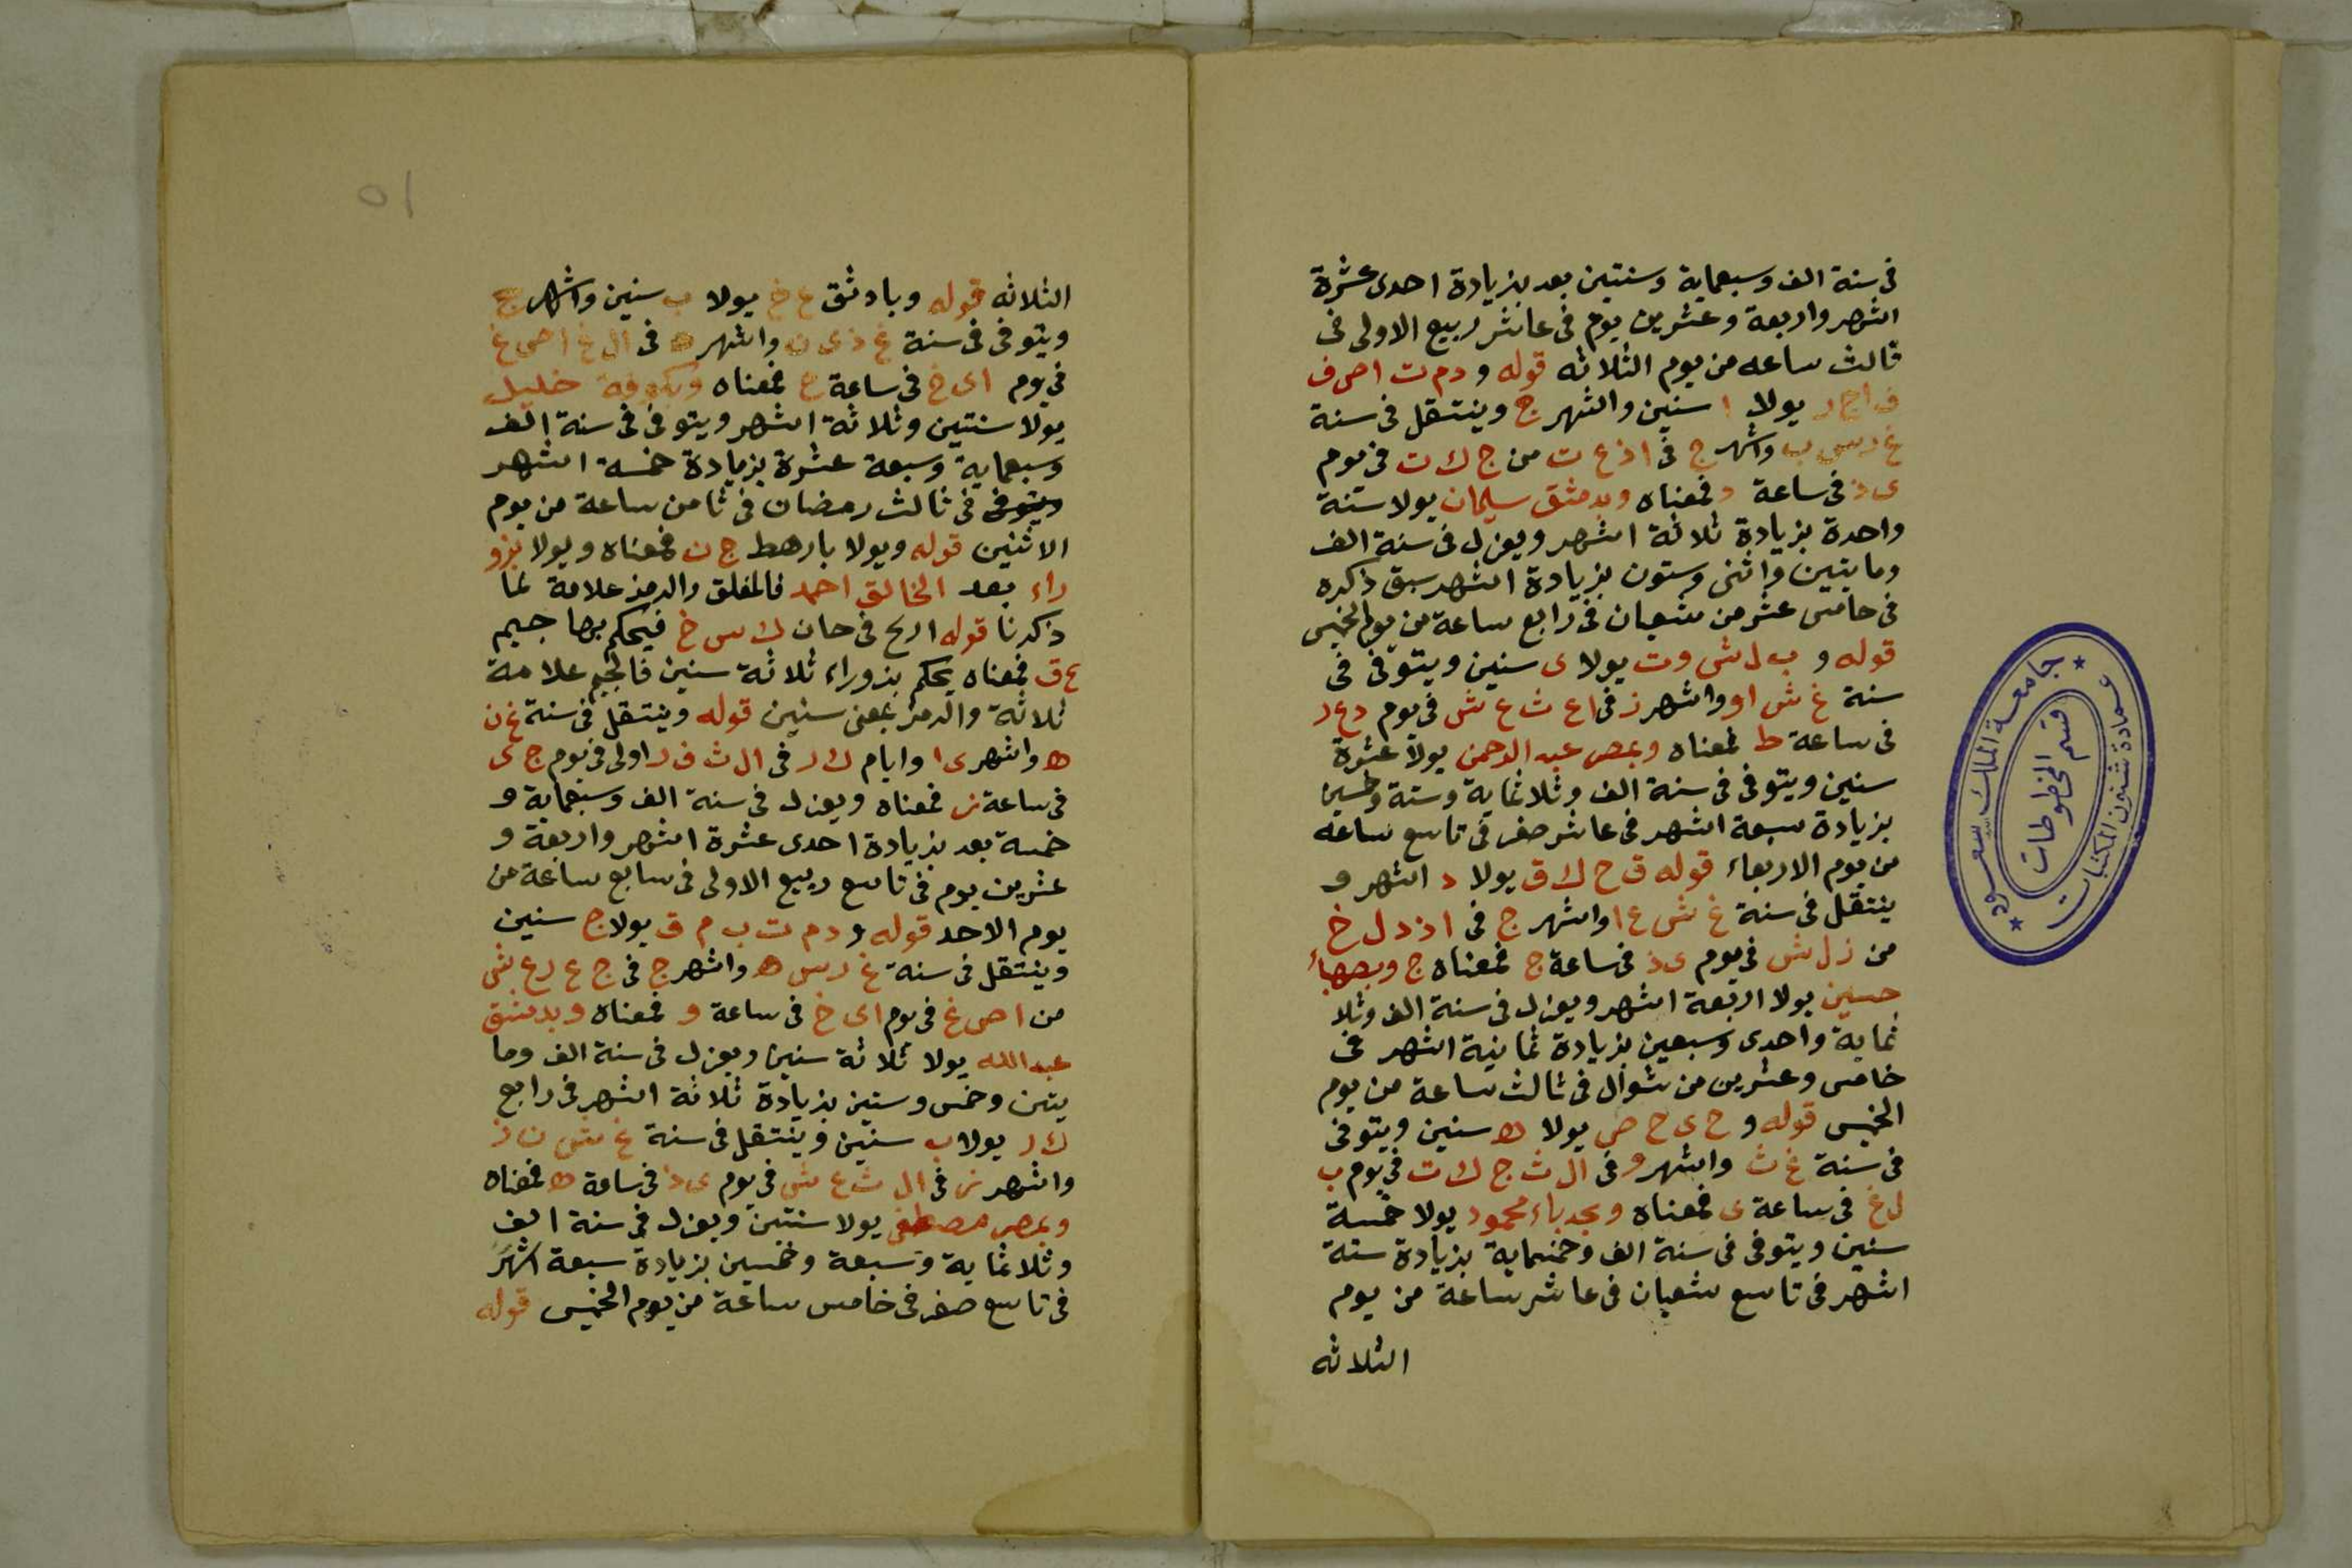 في سنة الف وسبعماية وسنتين بعد بزيادة احدى عشرة
اشهر واربعة وعشرين يوم في عاشر ربيع الاولى في
ثالث ساعه من يوم الثلاثه قوله و دم ت ا ص ف
يولا ا سنين واشهر ج وينتقل في سنة
واشهر ج في ا ذ ع ت من ج ك ت في يوم
ى ذ في ساعة د فمعناه وبدمشق سليمان يولا سنة
واحدة بزيادة ثلاثة اشهر ويعزل في سنة الف
ومايتين واثنى وستون بزيادة اشهر سبق ذكره
في خامس عشر من شعبان في رابع ساعة من يوم الخميس
قوله و ب ل ش و ت يولا ى سنين ويتوفى في
سنة غ ش ا و واشهر ز في ا ع ث ع ش في يوم د ع ر
في ساعة ط فمعناه وبمصر عبد الرحمن يولا عشرة
سنين ويتوفى في سنة الف وثلاثماية وستة وخمسين
بزيادة سبعة اشهر في عاشر صفر في تاسع ساعه
من يوم الاربعاء قوله ق ح ك ق يولا د اشهر و
ينتقل في سنة غ ش ع ا واشهر ج في ا ذ د ل خ
من ز ل ش في يوم ى ذ في ساعة ج فمعناه ج
حسين يولا اربعة اشهر ويعزل في سنة الف وثلا
ثماية واحدى وسبعين بزيادة ثمانية اشهر في
خامس وعشرين من شوال في ثالث ساعة من يوم
الخميس قوله و ح ى ح ص يولا ه سنين ويتوفى
في سنة غ ث واشهر و في ال ث ج ك ت في يوم ب
ل غ في ساعة ى فمعناه محمود يولا خمسة
سنين ويتوفى في سنة الف وخمسماية بزيادة ستة
اشهر في تاسع شعبان في عاشر ساعة من يوم
الثلاثه
جامعة الملك سعود
عمادة شئون المكتبات
قسم المخطوطات
٥١
الثلاثه قوله و با د ثق ع خ يولا ب سنين واشهر ج
ويتوفى في سنة غ ذ ى ن واشهر ه في ال غ ا ص غ
في يوم ا ى خ في ساعة ح فمعناه وبكوفة خليل
يولا سنتين وثلاثة اشهر ويتوفى في سنة الف
وسبعماية وسبعة عشرة بزيادة خمسة اشهر
ويتوفى في ثالث رمضان في ثامن ساعة من يوم
الاثنين قوله ويولا بارهط ج ن فمعناه ويولا بزو
راء بعد الخالق احمد فالمغلق والرمز علامة لما
ذكرنا قوله ارح في حان ك س خ فيحكم بها جيم
ع ق فمعناه يحكم بزوراء ثلاثة سنين فالجيم علامة
ثلاثة والرمز بمعنى سنين قوله وينتقل في سنة غ ن
ه واشهر ى ا وايام ك ر في ال ث ف ر اولى في يوم ج ى
في ساعة ز فمعناه ويعزل في سنة الف وسبعماية و
خمسة بعد بزيادة احدى عشرة اشهر واربعة و
عشرين يوم في تاسع ربيع الاولى في سابع ساعة من
يوم الاحد قوله و دم ت ب م ق يولا ج سنين
وينتقل في سنة غ ر س ه واشهر ج في ج ع ر ع ش
من ا ص غ في يوم ا ى خ في ساعة و فمعناه وبدمشق
عبدالله يولا ثلاثة سنين ويعزل في سنة الف وما
يتين وخمس وستين بزيادة ثلاثة اشهر في رابع
ك ر يولا ب سنين وينتقل في سنة غ ش ن ز
واشهر ز في ال ث ع ش في يوم ى ذ في ساعة ه فمعناه
وبمصر مصطفى يولا سنتين ويعزل في سنة الف
وثلاثماية وسبعة وخمسين بزيادة سبعة اشهر
في تاسع صفر في خامس ساعة من يوم الخميس قوله